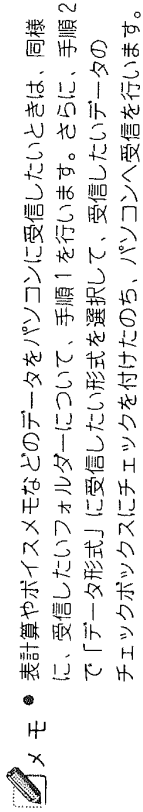 メモ ● 表計算やボイスメモなどのデータをパソコンに受信したいときは、同様
に、受信したいフォルダーについて、手順1を行います。さらに、手順2
で「データ形式」に受信したい形式を選択して、受信したいデータの
チェックボックスにチェックを付けたのち、パソコンへ受信を行います。